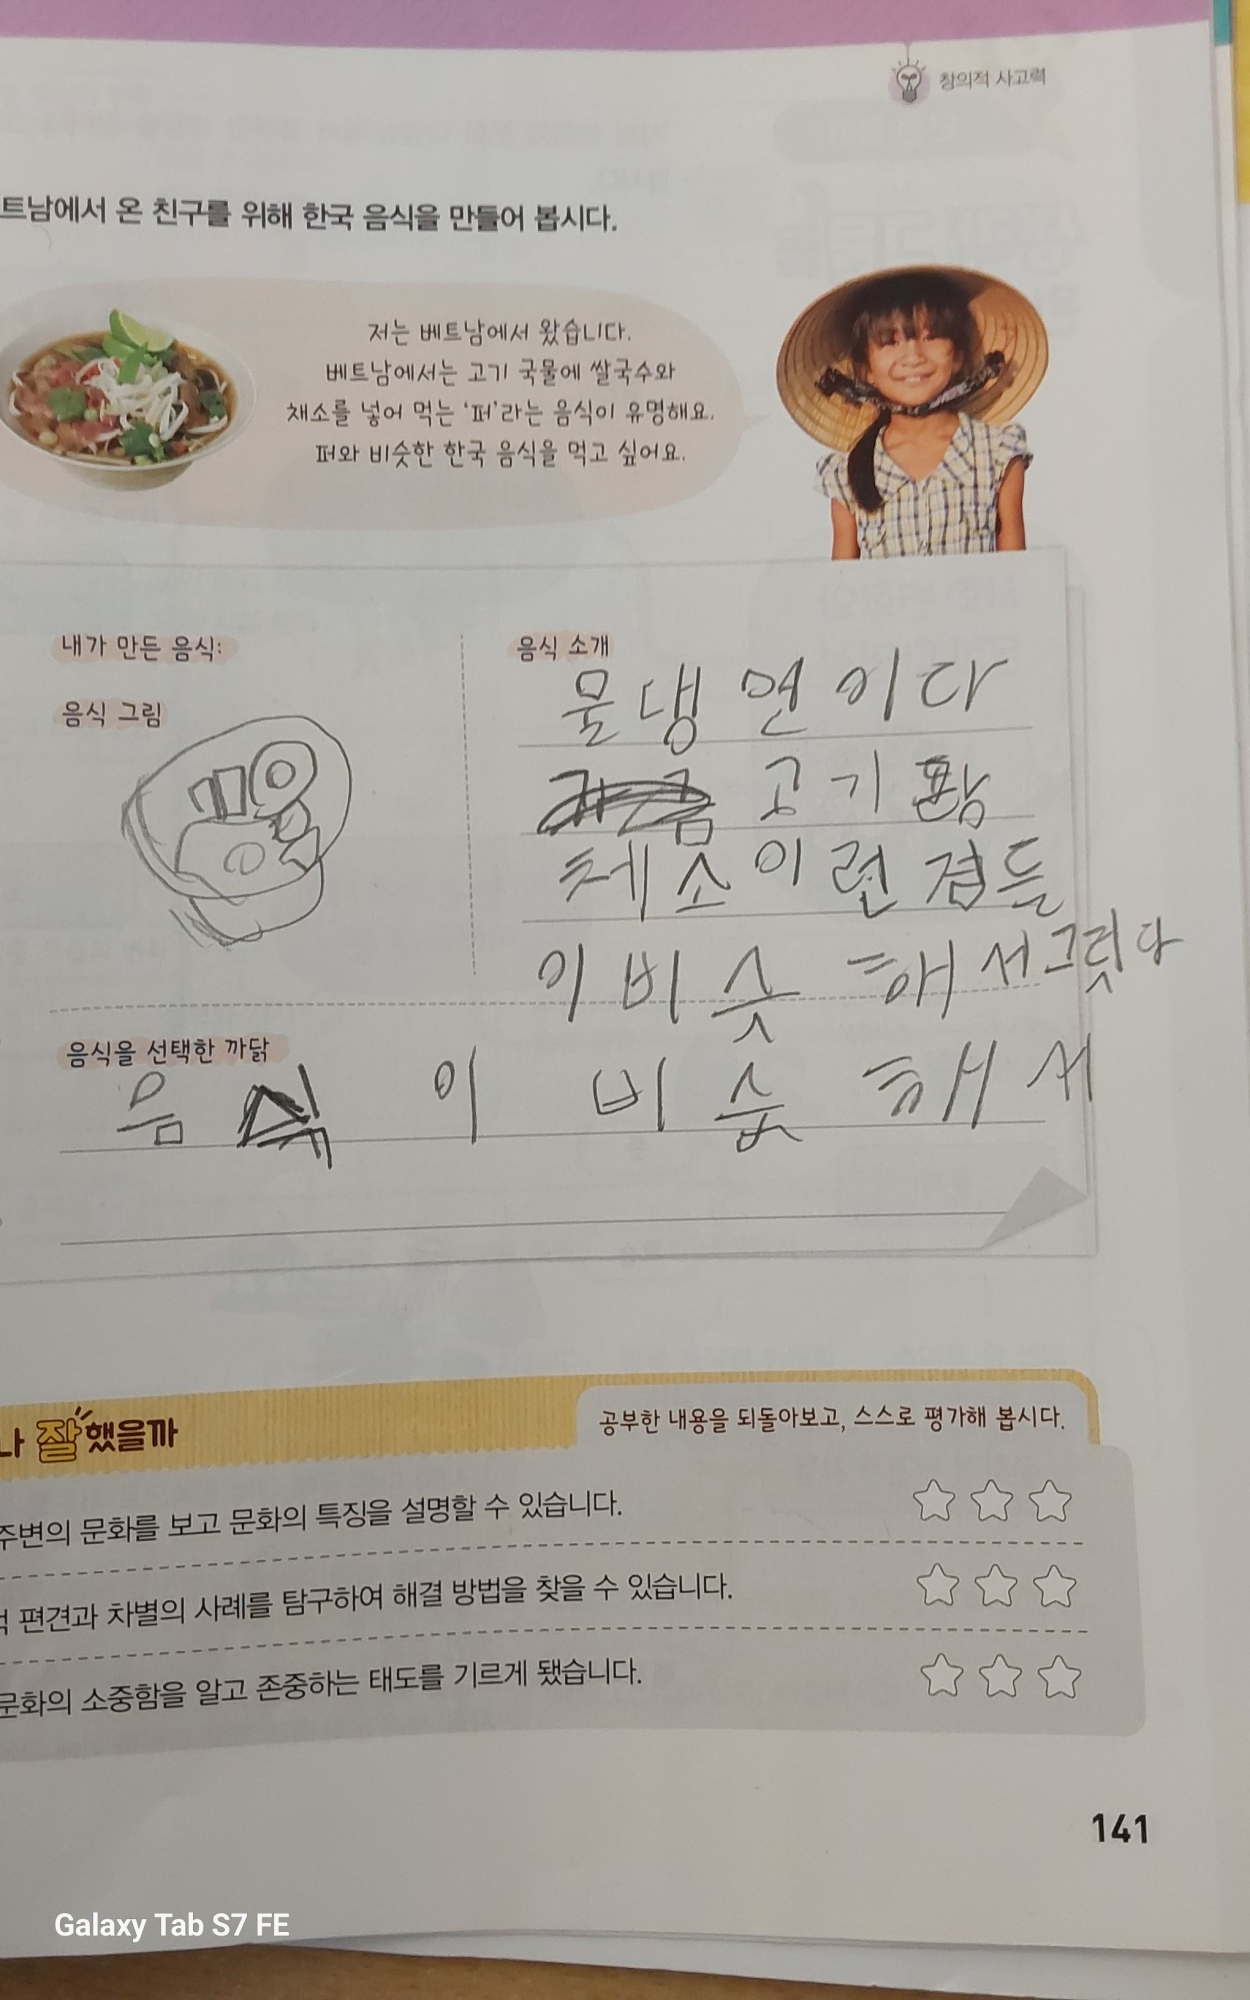 창의적 사고력
트남에서 온 친구를 위해 한국 음식을 만들어 봅시다.
저는 베트남에서 왔습니다.
베트남에서는 고기 국물에 쌀국수와
채소를 넣어 먹는 '퍼'라는 음식이 유명해요.
퍼와 비슷한 한국 음식을 먹고 싶어요.
내가 만든 음식:
음식 그림
음식 소개
물냉면이다
고기
체소이런점들
이비슷해서그릿다
음식을 선택한 까닭
음식이 비슷해서
나 잘했을까
공부한 내용을 되돌아보고, 스스로 평가해 봅시다.
주변의 문화를 보고 문화의 특징을 설명할 수 있습니다.
편견과 차별의 사례를 탐구하여 해결 방법을 찾을 수 있습니다.
문화의 소중함을 알고 존중하는 태도를 기르게 됐습니다.
141
Galaxy Tab S7 FE